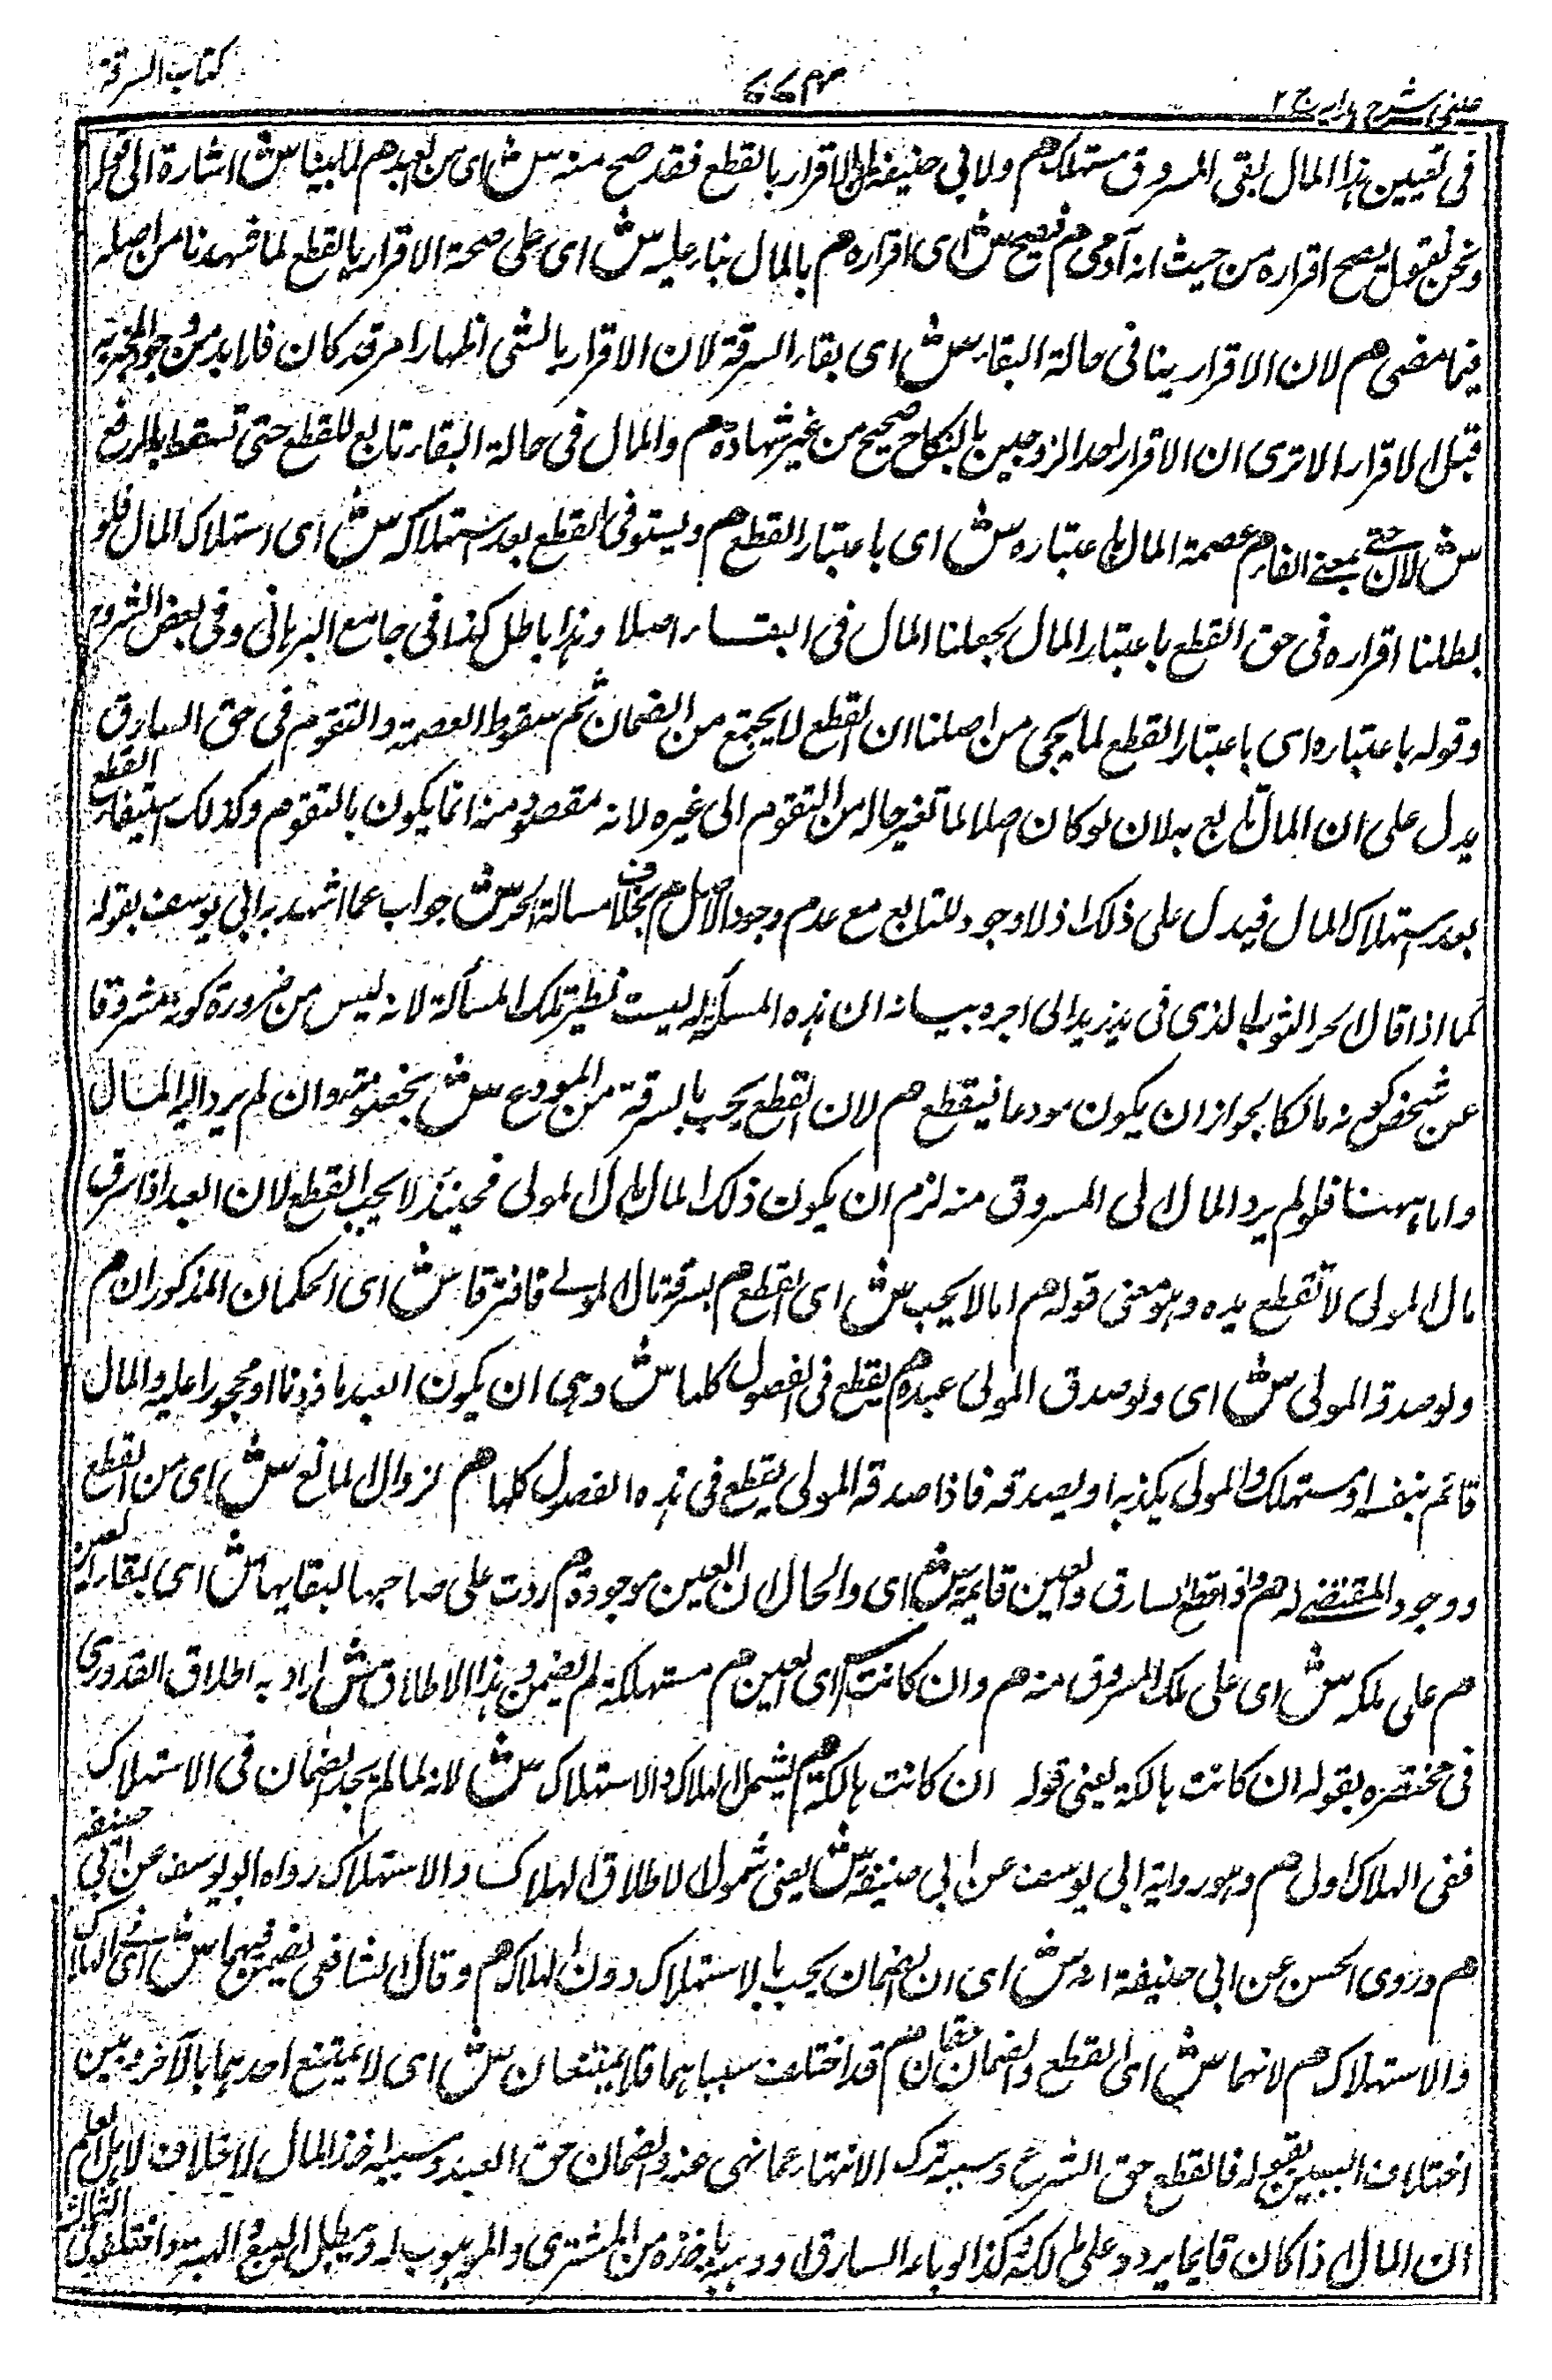 عینی شرح ہدایہ ج ۲
۷۷۴
کتاب السرقۃ
فی تعیین ہذا المال بقی المسروق مستہلکا ھم ولابی حنیفۃ ان الاقرار بالقطع فقد صح منہ ش ای من العبد ھم لما بینا ش اشارۃ الی قولہ
ونحن نقول یصح اقرارہ من حیث انہ آدمی ھم فیصح ش ای اقرارہ ھم بالمال بناء علیہ ش ای علی صحۃ الاقرار بالقطع لما شہدنا من اصلہ
فیما مضی ھم لان الاقرار ینافی حالۃ البقاء ش ای بقاء السرقۃ لان الاقرار بالشئ اظہار امر قد کان فلا بد من وجود المخبر بہ
قبل الاقرار الا تری ان الاقرار لاحد الزوجین بالنکاح صحیح من غیر شہادۃ ھم والمال فی حالۃ البقاء تابع للقطع حتی تسقط
ش لان حتی بمعنی الفاء ھم عصمۃ المال باعتبارہ ش ای باعتبار القطع ھم ویستوفی القطع بعد استہلاکہ ش ای استہلاک المال فلو
بطلنا اقرارہ فی حق القطع باعتبار المال یجعلنا المال فی البقاء اصلا وہذا باطل کذا فی جامع البرہانی وفی بعض الشروح
وقولہ باعتبارہ ای باعتبار القطع لما یجئ من اصلنا ان القطع لا یجتمع من الضمان ثم سقوط العصمۃ والتقوم فی حق السارق
یدل علی ان المال تابع بہ لان لو کان اصلا لما تغیر حالہ من التقوم الی غیرہ لانہ مقصود منہ انما یکون بالتقوم وکذلک استیفاء القطع
بعد استہلاک المال فیدل علی ذلک اذ لا وجود للتابع مع عدم وجود الاصل ھم بخلاف مسالۃ الحر ش جواب عما اشہد بہ ابی یوسف بقولہ
کما اذا قال الحر الثوب الذی فی ید زید الی اجرہ بیانہ ان ہذہ المسئلۃ لیست نظیر تلک المسألۃ لانہ لیس من ضرورۃ کونہ مسروقا
عن شخص کونہ مالکا لجواز ان یکون مودعا فیقطع ھم لان القطع یجب بالسرقۃ من المودع ش بخصومتہ وان لم یرد الیہ المال
واما ہہنا فلو لم یرد المال الی المسروق منہ لزم ان یکون ذلک المال مال المولی فحینئذ لا یجب القطع لان العبد اذا سرق
مال المولی لا تقطع یدہ وہو معنی قولہ ھم اما لا یجب ش ای القطع ھم بسرقۃ مال المولی فافترقا ش ای الحکمان المذکوران ھم
ولو صدقہ المولی ش ای ولو صدق المولی عبدہ ھم یقطع فی الفصول کلہا ش وہی ان یکون العبد ماذونا او محجورا علیہ والمال
قائم بنفسہ او مستہلک والمولی یکذبہ او یصدقہ فاذا صدقہ المولی یقطع فی ہذہ الفصول کلہا ھم لزوال المانع ش ای من القطع
ووجود المقتضی لہ ھم واذا قطع السارق والعین قایمۃ ش ای والحال ان العین موجودۃ ھم ردت علی صاحبہا لبقایہا ش ای لبقاء العین
ھم علی ملکہ ش ای علی ملک المسروق منہ ھم وان کانت ش ای العین ھم مستہلکۃ لم یضمن وہذا الاطلاق ش اراد بہ اطلاق القدوری
فی مختصرہ بقولہ ان کانت ہالکۃ یعنی قولہ ان کانت ہالکۃ ھم یشمل الہلاک والاستہلاک ش لانہ لما لم یجب الضمان فی الاستہلاک
ففی الہلاک اولی ھم وہو روایۃ ابی یوسف عن ابی حنیفۃ ش یعنی شمول الاطلاق الہلاک والاستہلاک رواہ ابو یوسف عن ابی حنیفۃ
ھم وروی الحسن عن ابی حنیفۃ انہ ش ای ان الضمان یجب بالاستہلاک دون الہلاک ھم وقال الشافعی یضمن فیہما ش ای فی الہلاک
والاستہلاک ھم لانہما ش ای القطع والضمان حقان ھم قد اختلف سبباہما فلا یمتنعان ش ای لا یمتنع احدہما بالآخر وبین
اختلاف السببین بقولہ فالقطع حق الشرع وسببہ ترک الانتہاء عما نہی عنہ والضمان حق العبد وسببہ اخذ المال لا خلاف لاہل العلم
ان المال اذا کان قایما یرد علی مالکہ وکذا لو باعہ السارق او وہبہ یاخذہ من المشتری والموہوب لہ ویبطل البیع والہبۃ واختلفوا فی الہالک